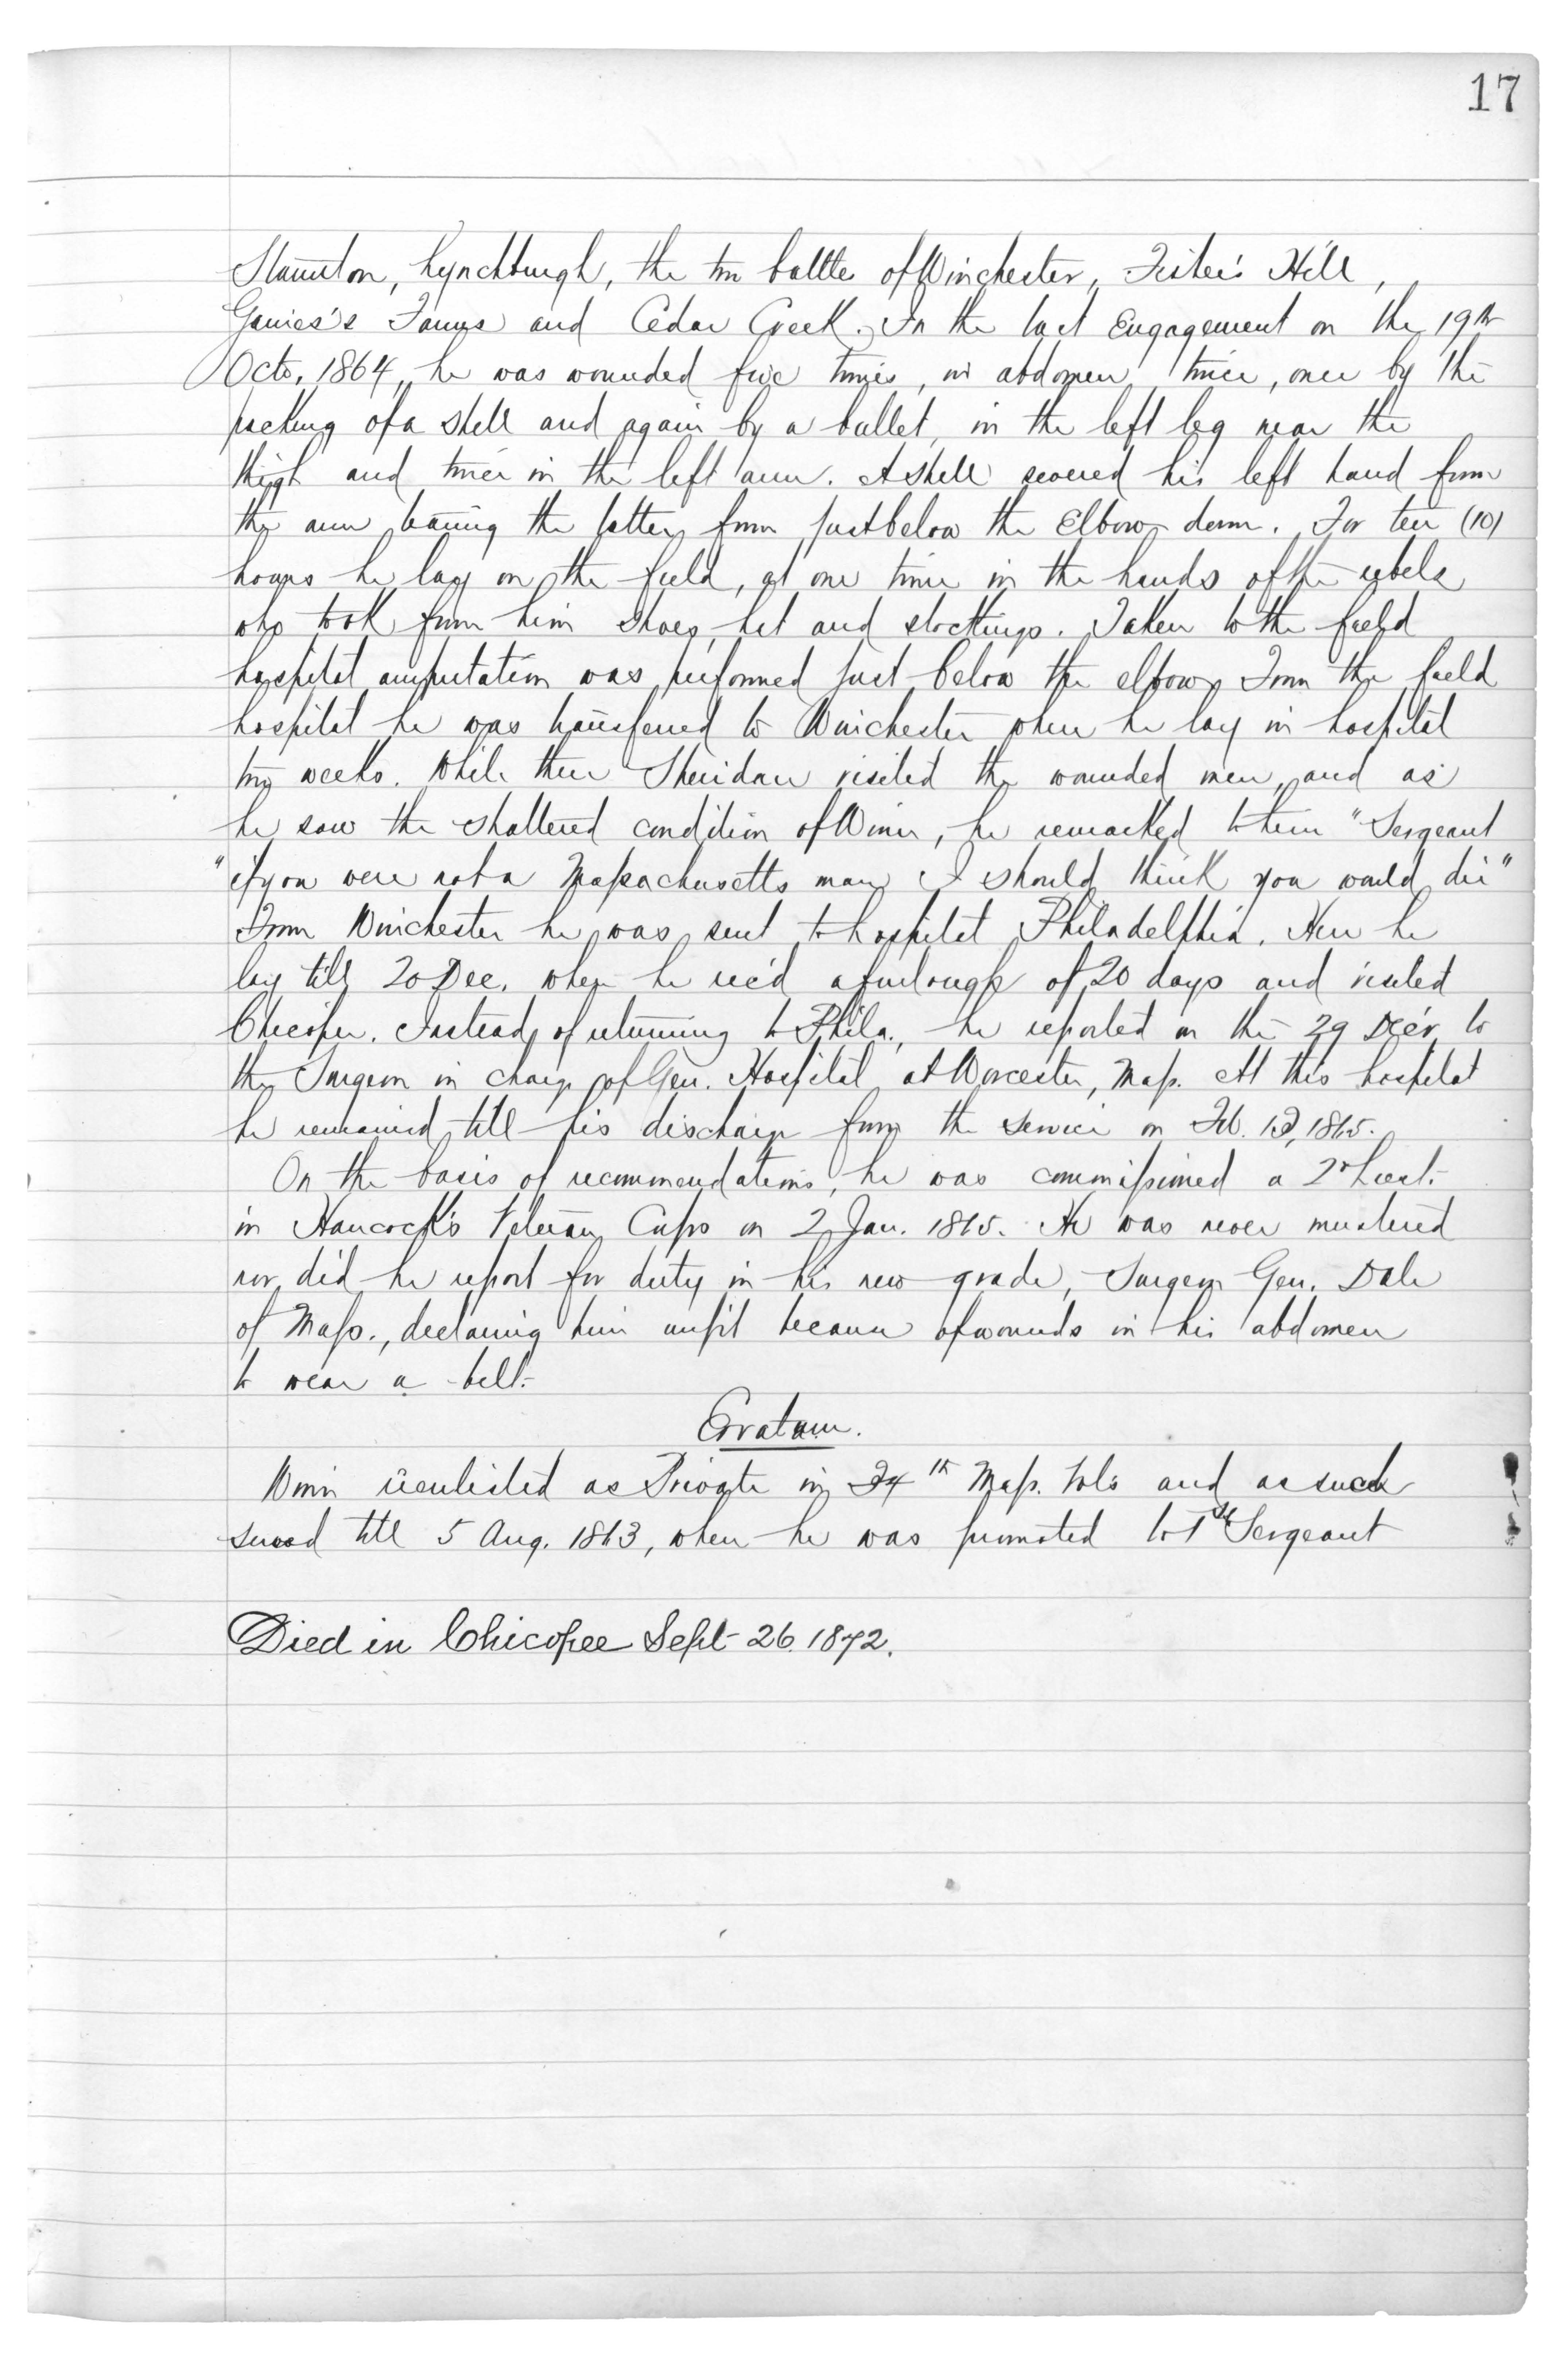 17
Staunton, Lynchburgh, the two battles of Winchester, Fisher's Hill,
Gaines's Farms and Cedar Creek. In the last Engagement on the 19th
Octo. 1864, he was wounded five times, in abdomen twice, once by the
packing of a shell and again by a bullet, in the left leg near the
thigh and twice in the left arm. A shell severed his left hand from
the arm tearing the latter from just below the Elbow down. For ten (10)
hours he lay on the field, at one time in the hands of the rebels
who took from him shoes, hat and stockings. Taken to the field
hospital amputation was performed just below the elbow. From the field
hospital he was transferred to Winchester where he lay in hospital
two weeks. While there Sheridan visited the wounded men, and as
he saw the shattered condition of Winn, he remarked to him "Sergeant
"if you were not a Massachusetts man I should think you would die"
From Winchester he was sent to hospital Philadelphia. Here he
lay till 20 Dec. when he rec'd a furlough of 20 days and visited
Chicopee. Instead of returning to Phila., he reported on the 29 Dec'r to
the Surgeon in charge of Gen. Hospital at Worcester, Mass. At this hospital
he remained till his discharge from the service on Feb. 1865.
On the basis of recommendations, he was commissioned a 2d Lieut.
in Hancock's Veteran Corps on 2 Jan. 1865. He was never mustered
nor did he report for duty in his new grade, Surgeon Gen. Dale
of Mass., declaring him unfit because of wounds in his abdomen
to wear a belt.
Erratum.
Winn reenlisted as Private in 34th Mass. Vols and as such
served till 5 Aug. 1863, when he was promoted to 1st Sergeant
Died in Chicopee Sept 26. 1872.